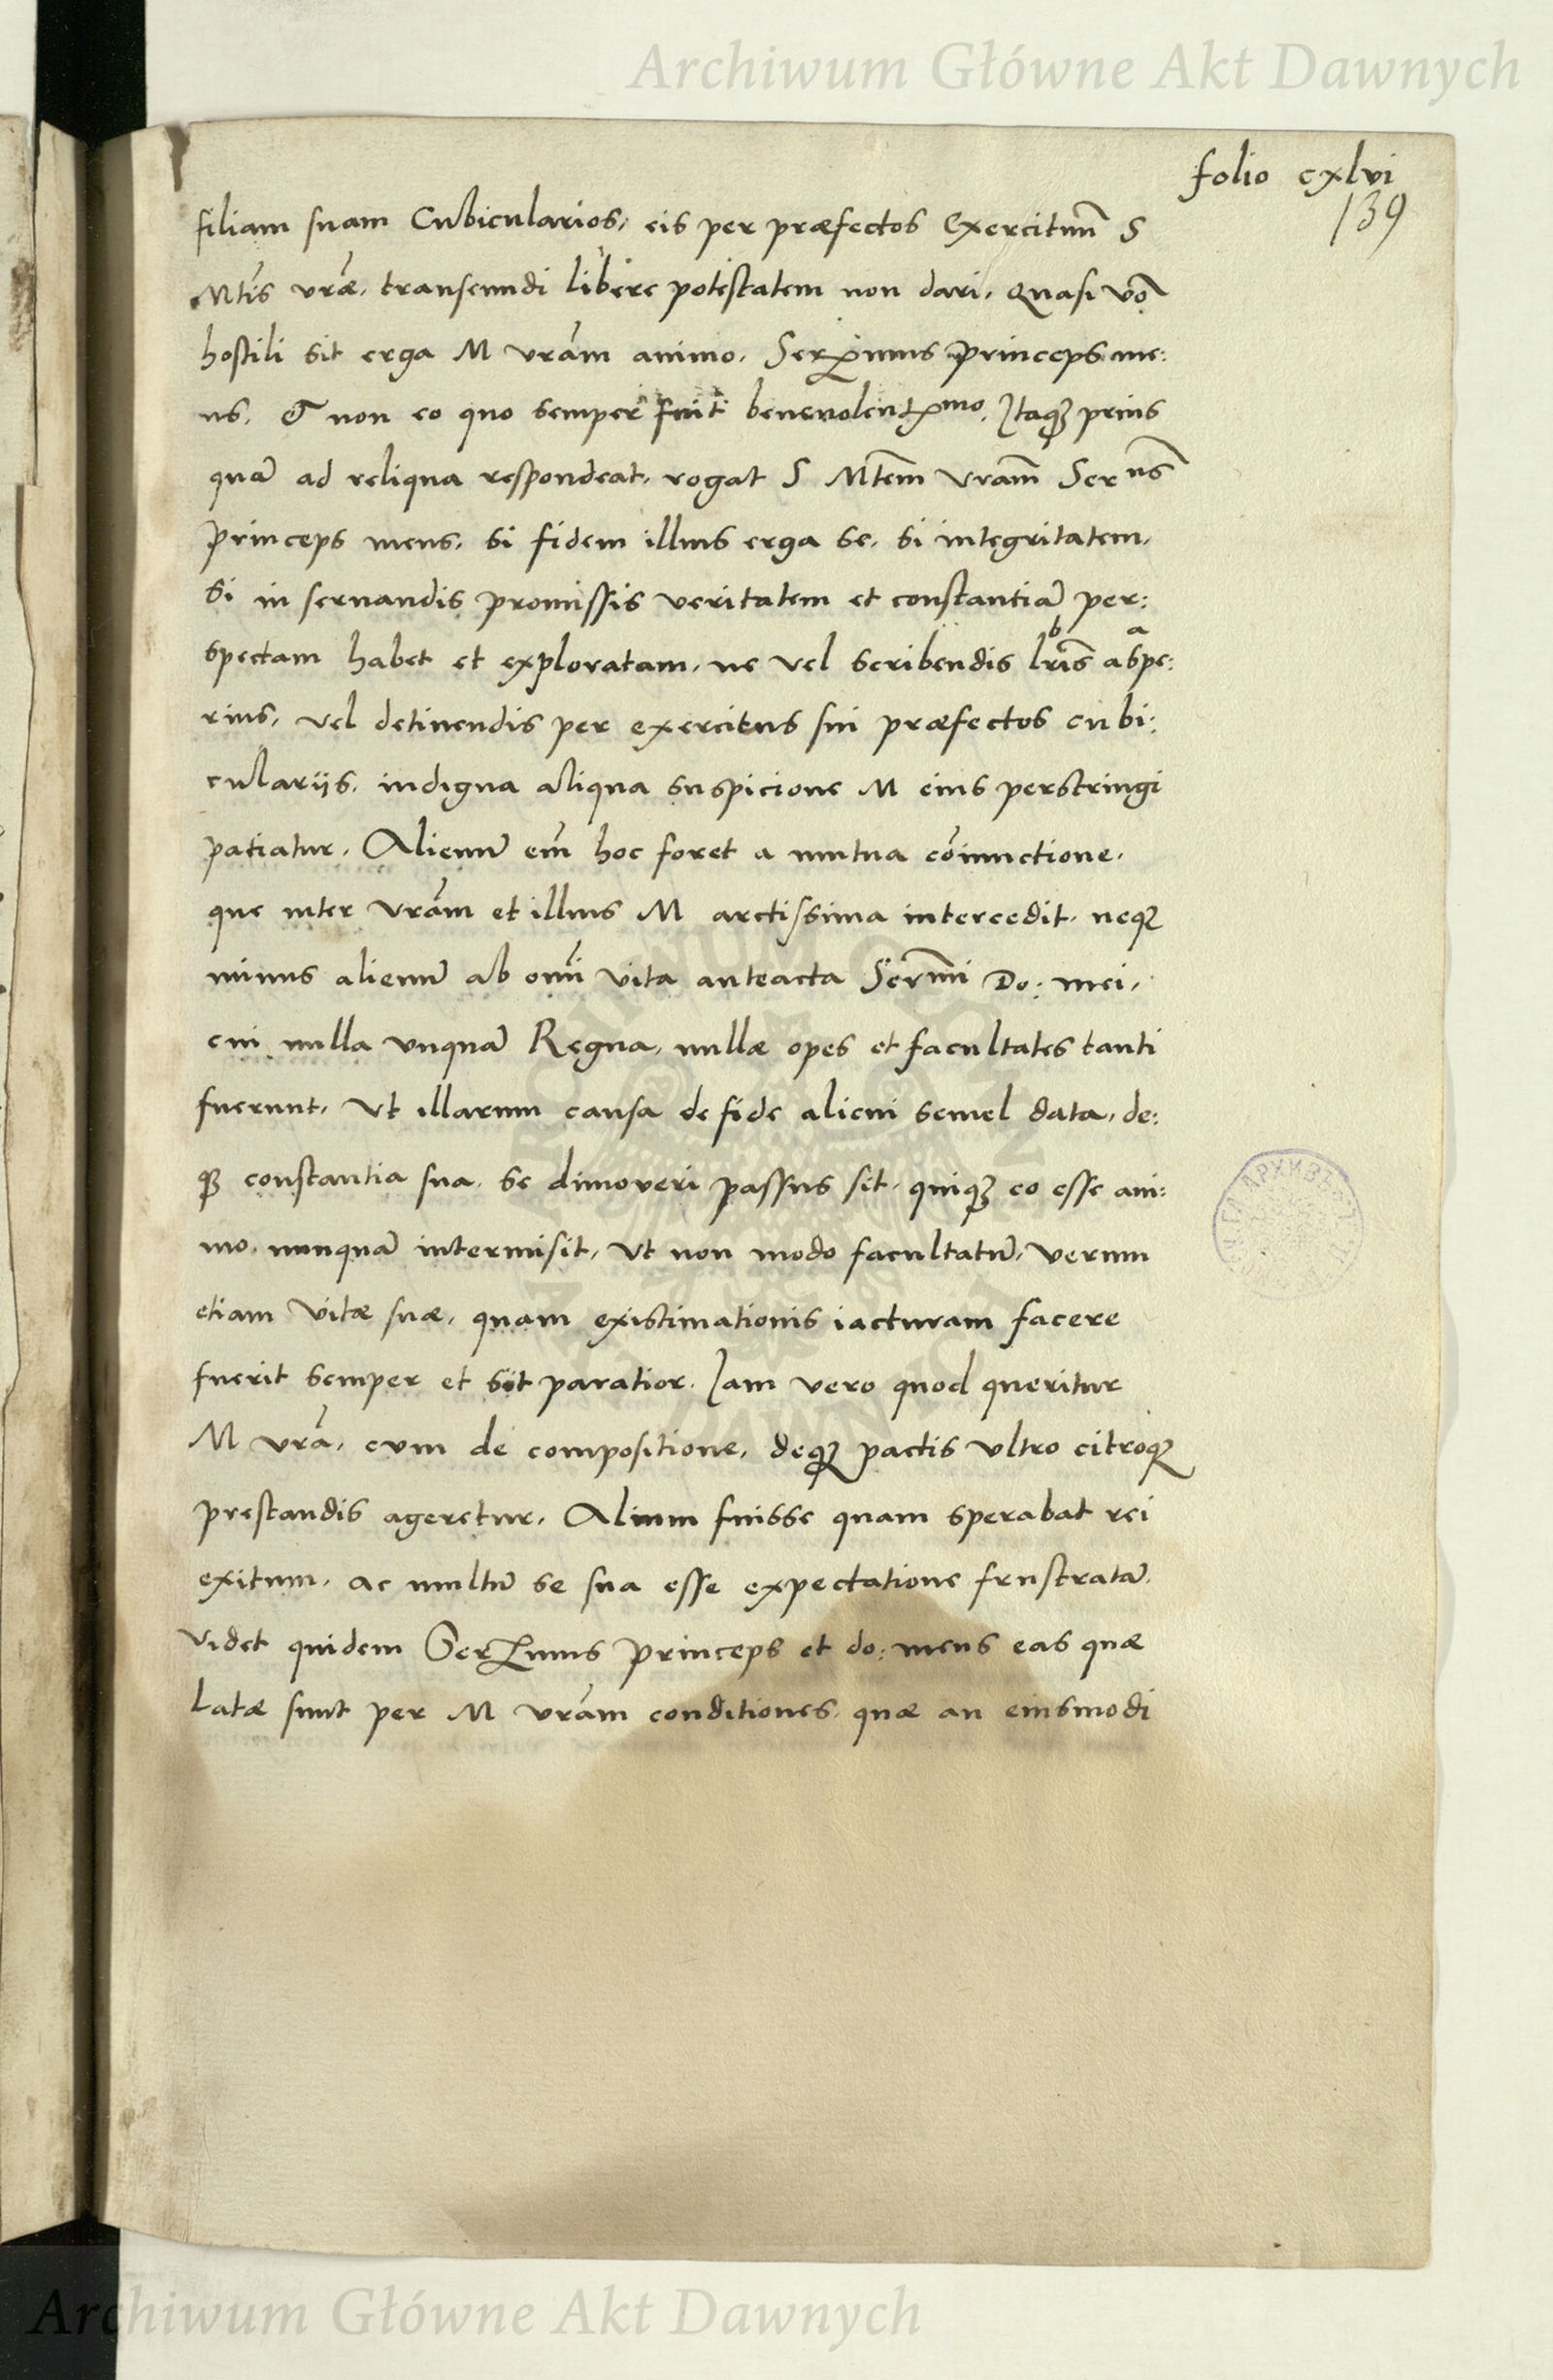 Archiwum Główne Akt Dawnych
folio cxlvi
139
filiam suam Cubicularios, eis per præfectos Exercituu͂ S
Mt͂is vr͂æ, transeundi libere potestatem non dari, quasi vo͂
hostili sit erga M vr͂am animo, Serx͂mus princeps me:
us, Et non eo quo semper fuit benevolentx͂mo. Itaqꝫ prius
qua͂ ad reliqua respondeat, rogat S Mt͂em vr͂am Ser͂us
princeps meus, si fidem illius erga se, si integritatem,
si in seruandis promissis veritatem et constantia͂ per:
spectam habet et exploratam, ne vel scribendis lr͂is b aspe: a
rius, vel detinendis per exercitus sui præfectos cubi:
culariis, indigna aliqua suspicione M eius perstringi
patiatur. Alienu͂ em͂ hoc foret a mutua co͂iunctione,
que inter vr͂am et illius M arctissima intercedit, neqꝫ
minus alienu͂ ab om͂i vita anteacta Serm͂i Do: mei,
cui nulla unqua͂ Regna, nullæ opes et facultates tanti
fuerunt, Vt illarum causa de fide alicui semel data, de:
qꝫ constantia sua, se dimoveri passus sit, quiqꝫ eo esse ani:
mo nunqua͂ intermisit, Vt non modo facultatu͂, verum
etiam vitæ suæ, quam existimationis iacturam facere
fuerit semper et sit paratior. Iam vero quod queritur
M vr͂a, cum de compositione, deqꝫ pactis ultro citroqꝫ
prestandis ageretur, Alium fuisse quam sperabat rei
exitum, ac multu͂ se sua esse expectatione frustrata͂,
Videt quidem Serx͂mus Princeps et do: meus eas quæ
latæ sunt per M vr͂am conditiones, quæ an eiusmodi
Archiwum Główne Akt Dawnych